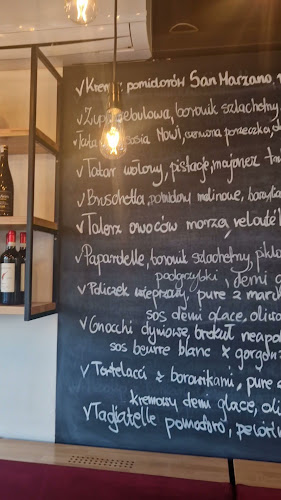 √ Krem z pomidorów San Marzano,
√ Zupa cebulowa, borowik szlachetny,
Nowi, czerwona porzeczka,
√ Tatar wołowy, pistacje, majonez
√ Bruschetta, pomidory malinowe,
√ Talerz owoców morza, velouté
√ Papardelle, borowik szlachetny,
podgrzybki, demi
√ Policzek wieprzowy, pure z march
sos demi glace, oliwa
√ Gnocchi dyniowe, brokuł neapol
sos beurre blanc x gorgon
√ Tortelacci z borowikami, pure z
kremowy demi glace, oli
√ Tagliatelle pomodoro,